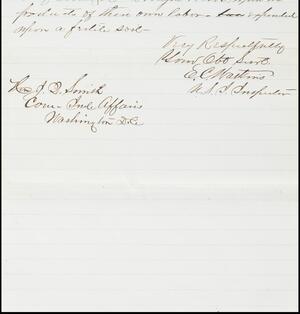 products of their own labor — expended
upon a fertile soil —
Very Respectfully
Your Obt Servt
E. C. Watkins
U. S. I. Inspector
Hon J. Q. Smith
Com- Ind Affairs
Washington D.C.